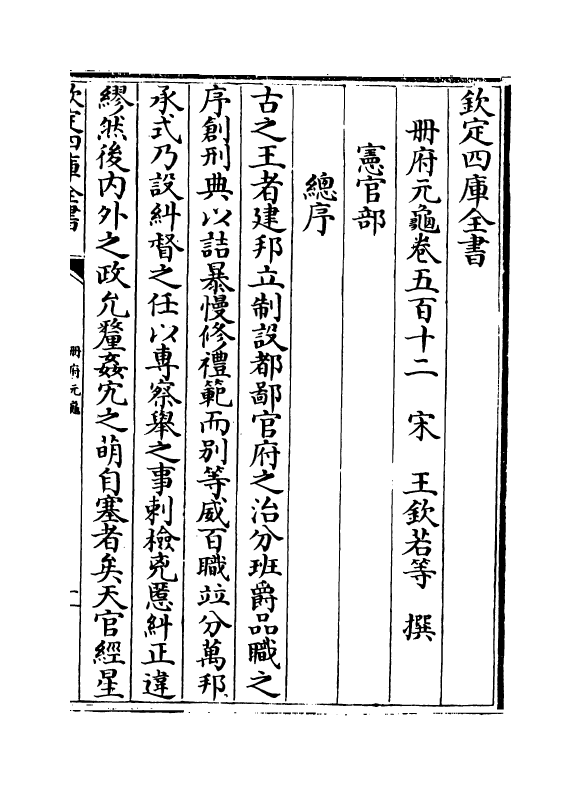 欽定四庫全書
冊府元龜卷五百十二　宋　王欽若等　撰
憲官部
總序
古之王者建邦立制設都鄙官府之治分班爵品職之
序創刑典以詰暴慢修禮範而別等威百職竝分萬邦
承式乃設糾督之任以專察舉之事刺檢兇慝糾正違
繆然後內外之政允釐姦宄之萌自塞者矣天官經星
欽定四庫全書
冊府元龜
一